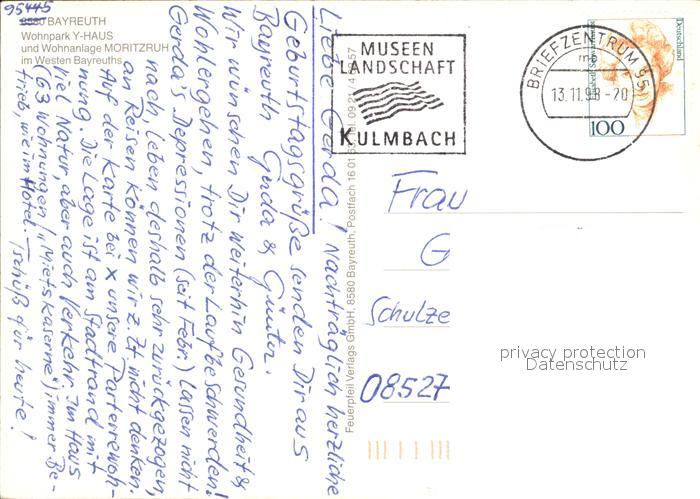 95445
8580 BAYREUTH
Wohnpark Y-HAUS
und Wohnanlage MORITZRUH
im Westen Bayreuths
Liebe Gerda! Nachträglich herzliche
Geburtstagsgrüße senden Dir aus
Bayreuth Gerda & Günter.
Wir wünschen Dir weiterhin Gesundheit &
Wohlergehen, trotz der Laufbeschwerden!
Gerda's Depressionen (seit Febr.) lassen nicht
nach, leben deshalb sehr zurückgezogen,
an Reisen können wir z. Zt nicht denken.
Auf der Karte bei x unsere Parterrewoh-
nung. Die Lage ist am Stadtrand mit
viel Natur aber auch Verkehr. Im Haus
(63 Wohnungen, "Mietskaserne") immer Be-
trieb, wie im Hotel. – Tschüß für heute!
Feuerpfeil Verlags GmbH, 8580 Bayreuth, Postfach 16 01
MUSEEN
LANDSCHAFT
KULMBACH
BRIEFZENTRUM 95
mb
13.11.98-20
Deutschland
100
Frau
G
Schulze
08527
privacy protection
Datenschutz